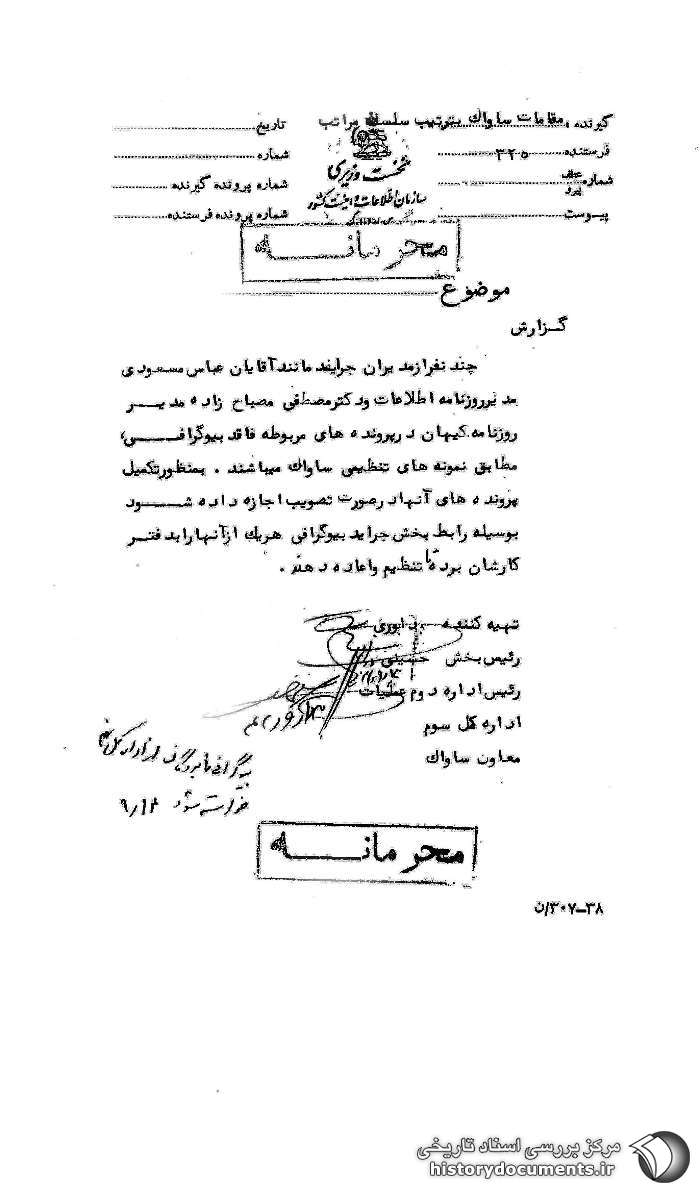 گیرنده مقامات ساواک بترتیب سلسله مراتب
تاریخ
فرستنده ۳۲۵
شماره
شماره
عطف
پیرو
شماره پرونده گیرنده
پیوست
شماره پرونده فرستنده
نخست وزیری
سازمان اطلاعات و امنیت کشور
محرمانه
موضوع
گزارش
چند نفر از مدیران جراید مانند آقایان عباس مسعودی
مدیر روزنامه اطلاعات و دکتر مصطفی مصباح زاده مدیر
روزنامه کیهان در پرونده های مربوطه فاقد بیوگرافی،
مطابق نمونه های تنظیمی ساواک میباشند . بمنظور تکمیل
پرونده های آنها در صورت تصویب اجازه داده شود
بوسیله رابط بخش جراید بیوگرافی هریک از آنها را بدفتر
کارشان برده تا تنظیم و اعاده دهند .
تهیه کننده
رئیس بخش
رئیس اداره دوم عملیات
اداره کل سوم
معاون ساواک
خواسته شود ۹/۱۴
محرمانه
۳۸-۳۰۷/ن
مرکز بررسی اسناد تاریخی
historydocuments.ir